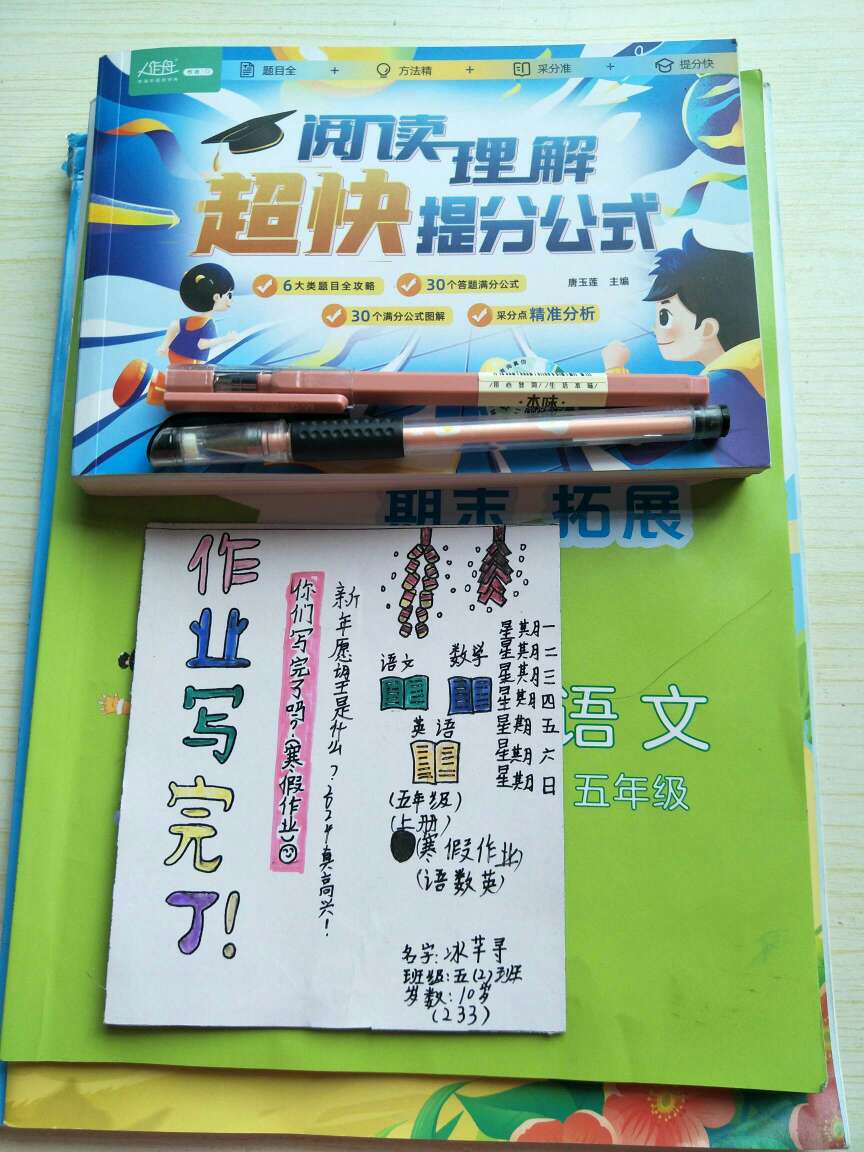 作舟
题目全 + 方法精 + 采分准 + 提分快
阅读理解
超快提分公式
6大类题目全攻略 30个答题满分公式
唐玉莲 主编
30个满分公式图解 采分点精准分析
本味
期末 拓展
语文
五年级
作业写完了!
你们写完了吗?(寒假作业)
新年愿望是什么?2024真高兴!
语文 数学
英语
(五年级)
(上册)
(寒假作业)
(语数英)
星期一
星期二
星期三
星期四
星期五
星期六
星期日
名字:冰芊寻
班级:五(2)班
岁数:10岁
(233)